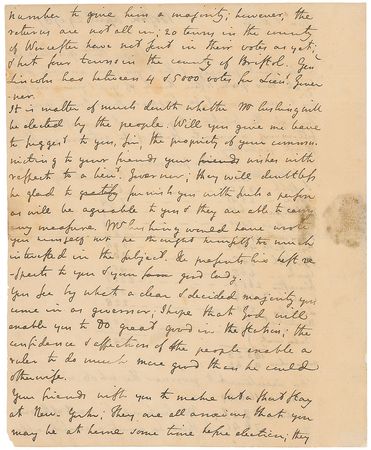 number to give him a majority; however, the
returns are not all in, 20 towns in the county
of Worcester have not sent in their votes as yet,
& but four towns in the county of Bristol. Gen.
Lincoln has between 4 & 5000 votes for Lieut. Gover
-nor.
It is matter of much doubt whether Mr Cushing will
be elected by the people. Will you give me leave
to suggest to you, Sir, the propriety of your commu-
nicating to your friends your friends wishes with
respect to a Lieut. Governor; they will doubtless
be glad to gratify furnish you with such a person
as will be agreeable to you if they are able to carry
any measure. Mr Cushing would have wrote
you himself but he thought himself too much
interested in the subject. He presents his best re-
spects to you & your good lady.
You see by what a clear & decided majority you
come in as governor, I hope that God will
enable you to do great good in the station; the
confidence & affection of the people enable a
ruler to do much more good than he could
otherwise.
Your friends wish you to make but a short stay
at New-York; they are all anxious that you
may be at home some time before election; they